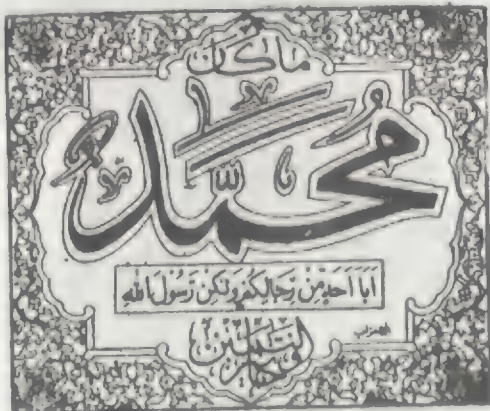 ما كان
مُحَمَّدٌ
أَبَا أَحَدٍ مِنْ رِجَالِكُمْ وَلَكِنْ رَسُولَ اللهِ
وخاتم النبيين